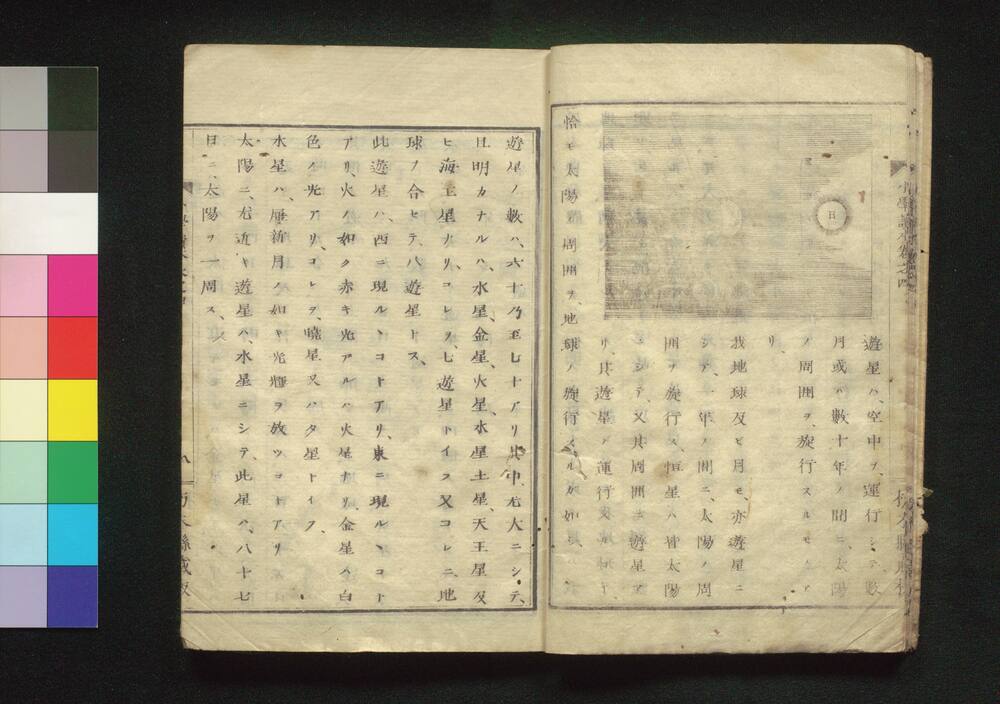 遊星ハ、空中ヲ、運行シテ、數
月或ハ數十年ノ間ニ、太陽
ノ周囲ヲ、旋行スルモノア
リ、
我地球及ヒ月モ、亦遊星ニ
シテ、一年ノ間ニ、太陽ノ周
囲ヲ旋行ス、恒星ハ皆太陽
ニシテ、又其周囲ニ遊星ア
リ、其遊星ノ運行
恰モ太陽ノ周囲ヲ、地球ノ旋行スルカ如シ、
日
遊星ノ數ハ、六十乃至七十アリ其中、尤大ニシテ、
且明カナルハ、水星、金星、火星、木星、土星、天王星、及
ヒ海王星ナリ、コレヲ、七遊星トイフ又コレニ、地
球ヲ合セテ、八遊星トス、
此遊星ハ、西ニ現ルヽコトアリ、東ニ現ルヽコト
アリ、火ノ如ク赤キ光アルハ火星ナリ、金星ハ白
色ノ光アリ、コレヲ、曉星又ハタ星トイフ、
水星ハ、屡新月ノ如キ光輝ヲ放ツコトアリ
太陽ニ、尤近キ遊星ハ、水星ニシテ、此星ハ、八十七
日ニ、太陽ヲ一周ス、